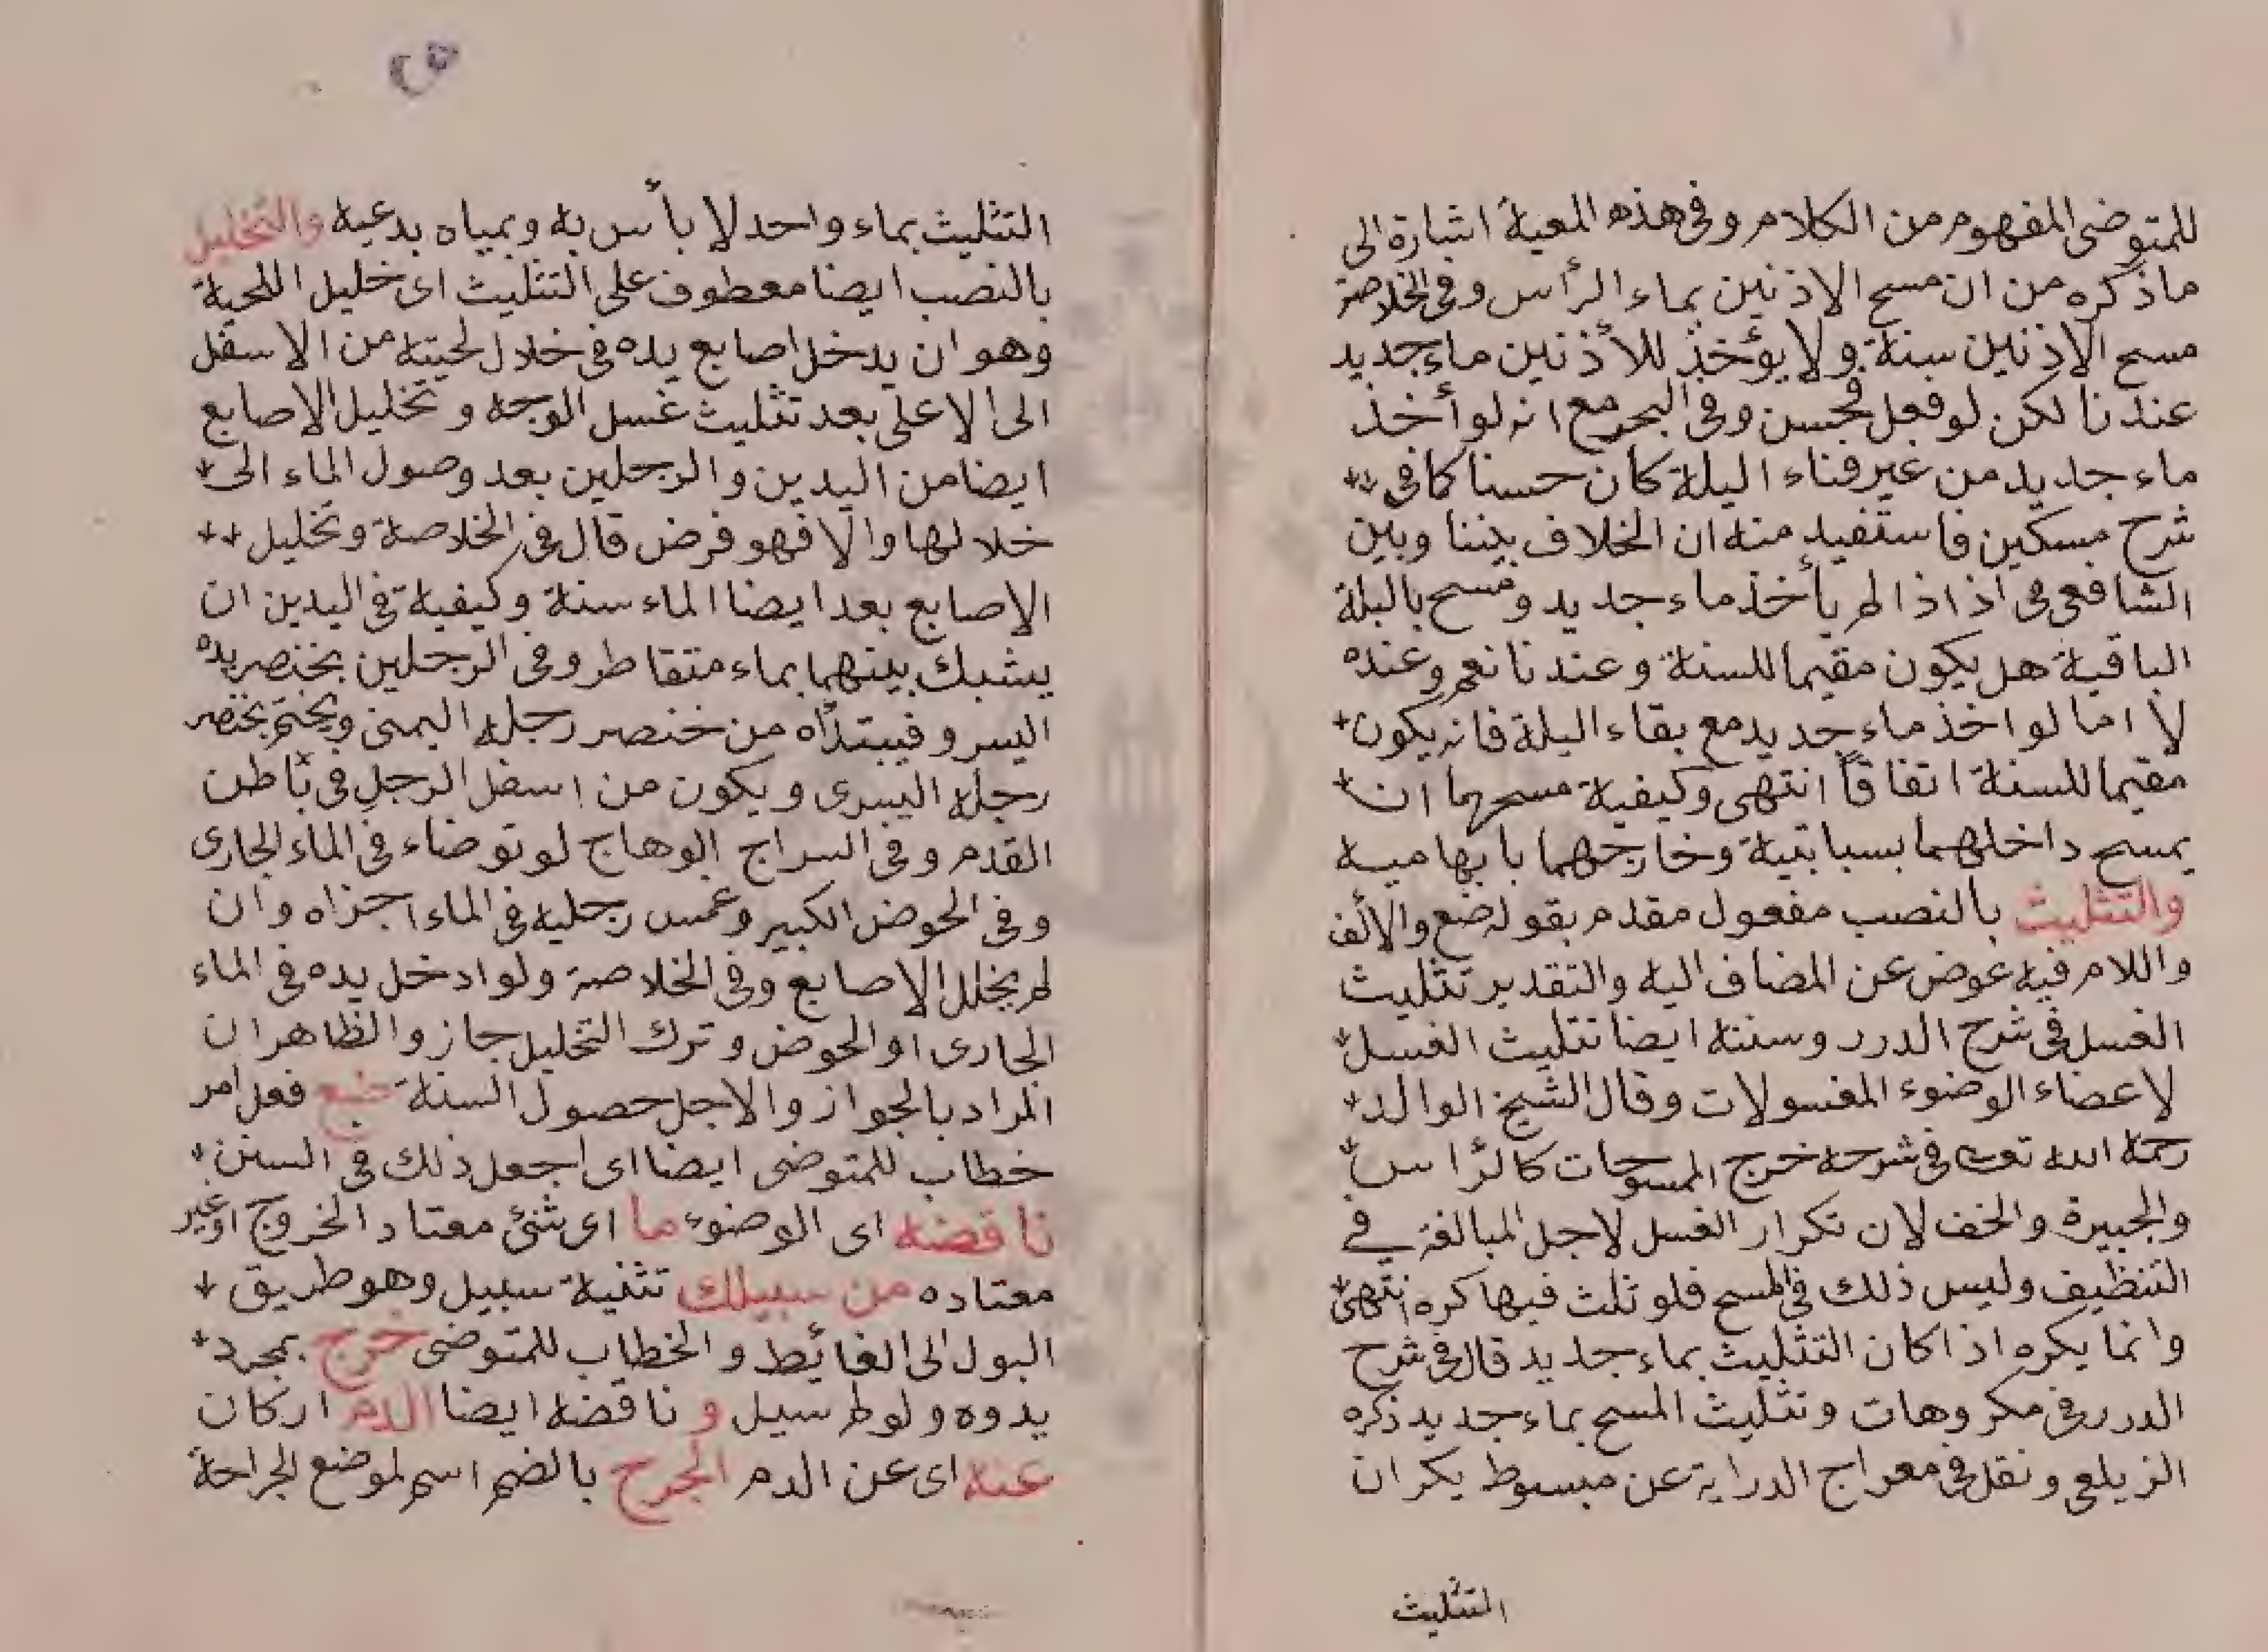 للمتوضى المفهوم من الكلام وفى هذه المعية اشارة الى
ماذكره من ان مسح الاذنين بماء الرأس وفى الخلاصة
مسح الاذنين سنة ولا يؤخذ للأذنين ماء جديد
عندنا لكن لو فعل فحسن وفى البحر مع انه لو أخذ
ماء جديد من غير فناء البلة كان حسنا كما فى
شرح مسكين فاستفيد منه ان الخلاف بيننا وبين
الشافعى فى اذ اذا لم يأخذ ماء جديد ومسح بالبلة
الباقية هل يكون مقيما للسنة وعندنا نعم وعنده
لا اما لو اخذ ماء جديد مع بقاء البلة فانه يكون
مقيما للسنة اتفاقاً انتهى وكيفية مسحهما ان
يمسح داخلهما بسبابتية وخارجهما بابهامية
والتثليث بالنصب مفعول مقدم بقوله ضع والألف
واللام فيه عوض عن المضاف اليه والتقدير تثليث
الغسل فى شرح الدرر وسنته ايضا تثليث الغسل
لاعضاء الوضوء المغسولات وقال الشيخ الوالد
رحمة الله تعالى فى شرحه خرج الممسوحات كالرأس
والجبيرة والخف لان تكرار الغسل لاجل المبالغة فى
التنظيف وليس ذلك فى المسح فلو ثلث فيها كره انتهى
وانما يكره اذا كان التثليث بماء جديد قال فى شرح
الدرر فى مكروهات وتثليث المسح بماء جديد ذكره
الزيلعى ونقل فى معراج الدراية عن مبسوط بكر ان
التثليث
التثليث بماء واحد لا بأس به وبمياه بدعية والتخليل
بالنصب ايضا معطوف على التثليث اى خليل اللحية
وهو ان يدخل اصابع يده فى خلال لحيته من الاسفل
الى الاعلى بعد تثليث غسل الوجه وتخليل الاصابع
ايضا من اليدين والرجلين بعد وصول الماء الى
خلالها والا فهو فرض قال فى الخلاصة وتخليل
الاصابع بعد ايضا الماء سنة وكيفية فى اليدين ان
يشبك بينهما بماء متقاطر وفى الرجلين بخنصر يده
اليسر و فيبتدأه من خنصر رجله اليمنى ويختم بخنصر
رجله اليسرى ويكون من اسفل الرجل فى باطن
القدم وفى السراج الوهاج لو توضاء فى الماء الجارى
وفى الحوض الكبير وغمس رجليه فى الماء اجزاه وان
لم يخلل الاصابع وفى الخلاصة ولو ادخل يده فى الماء
الجارى او الحوض وترك التخليل جاز والظاهر ان
المراد بالجواز والاجل حصول السنة ضع فعل امر
خطاب للمتوضى ايضا اى اجعل ذلك فى السنن
ناقضه اى الوضوء ما اى شئ معتاد الخروج او غير
معتاده من سبيلك تثنية سبيل وهو طريق
البول الى الغائط والخطاب للمتوضى خرج بمجرد
بدوه ولو لم سيل و ناقضه ايضا الدم ار كان
عنه اى عن الدم الجرح بالضم اسم لموضع الجراحة